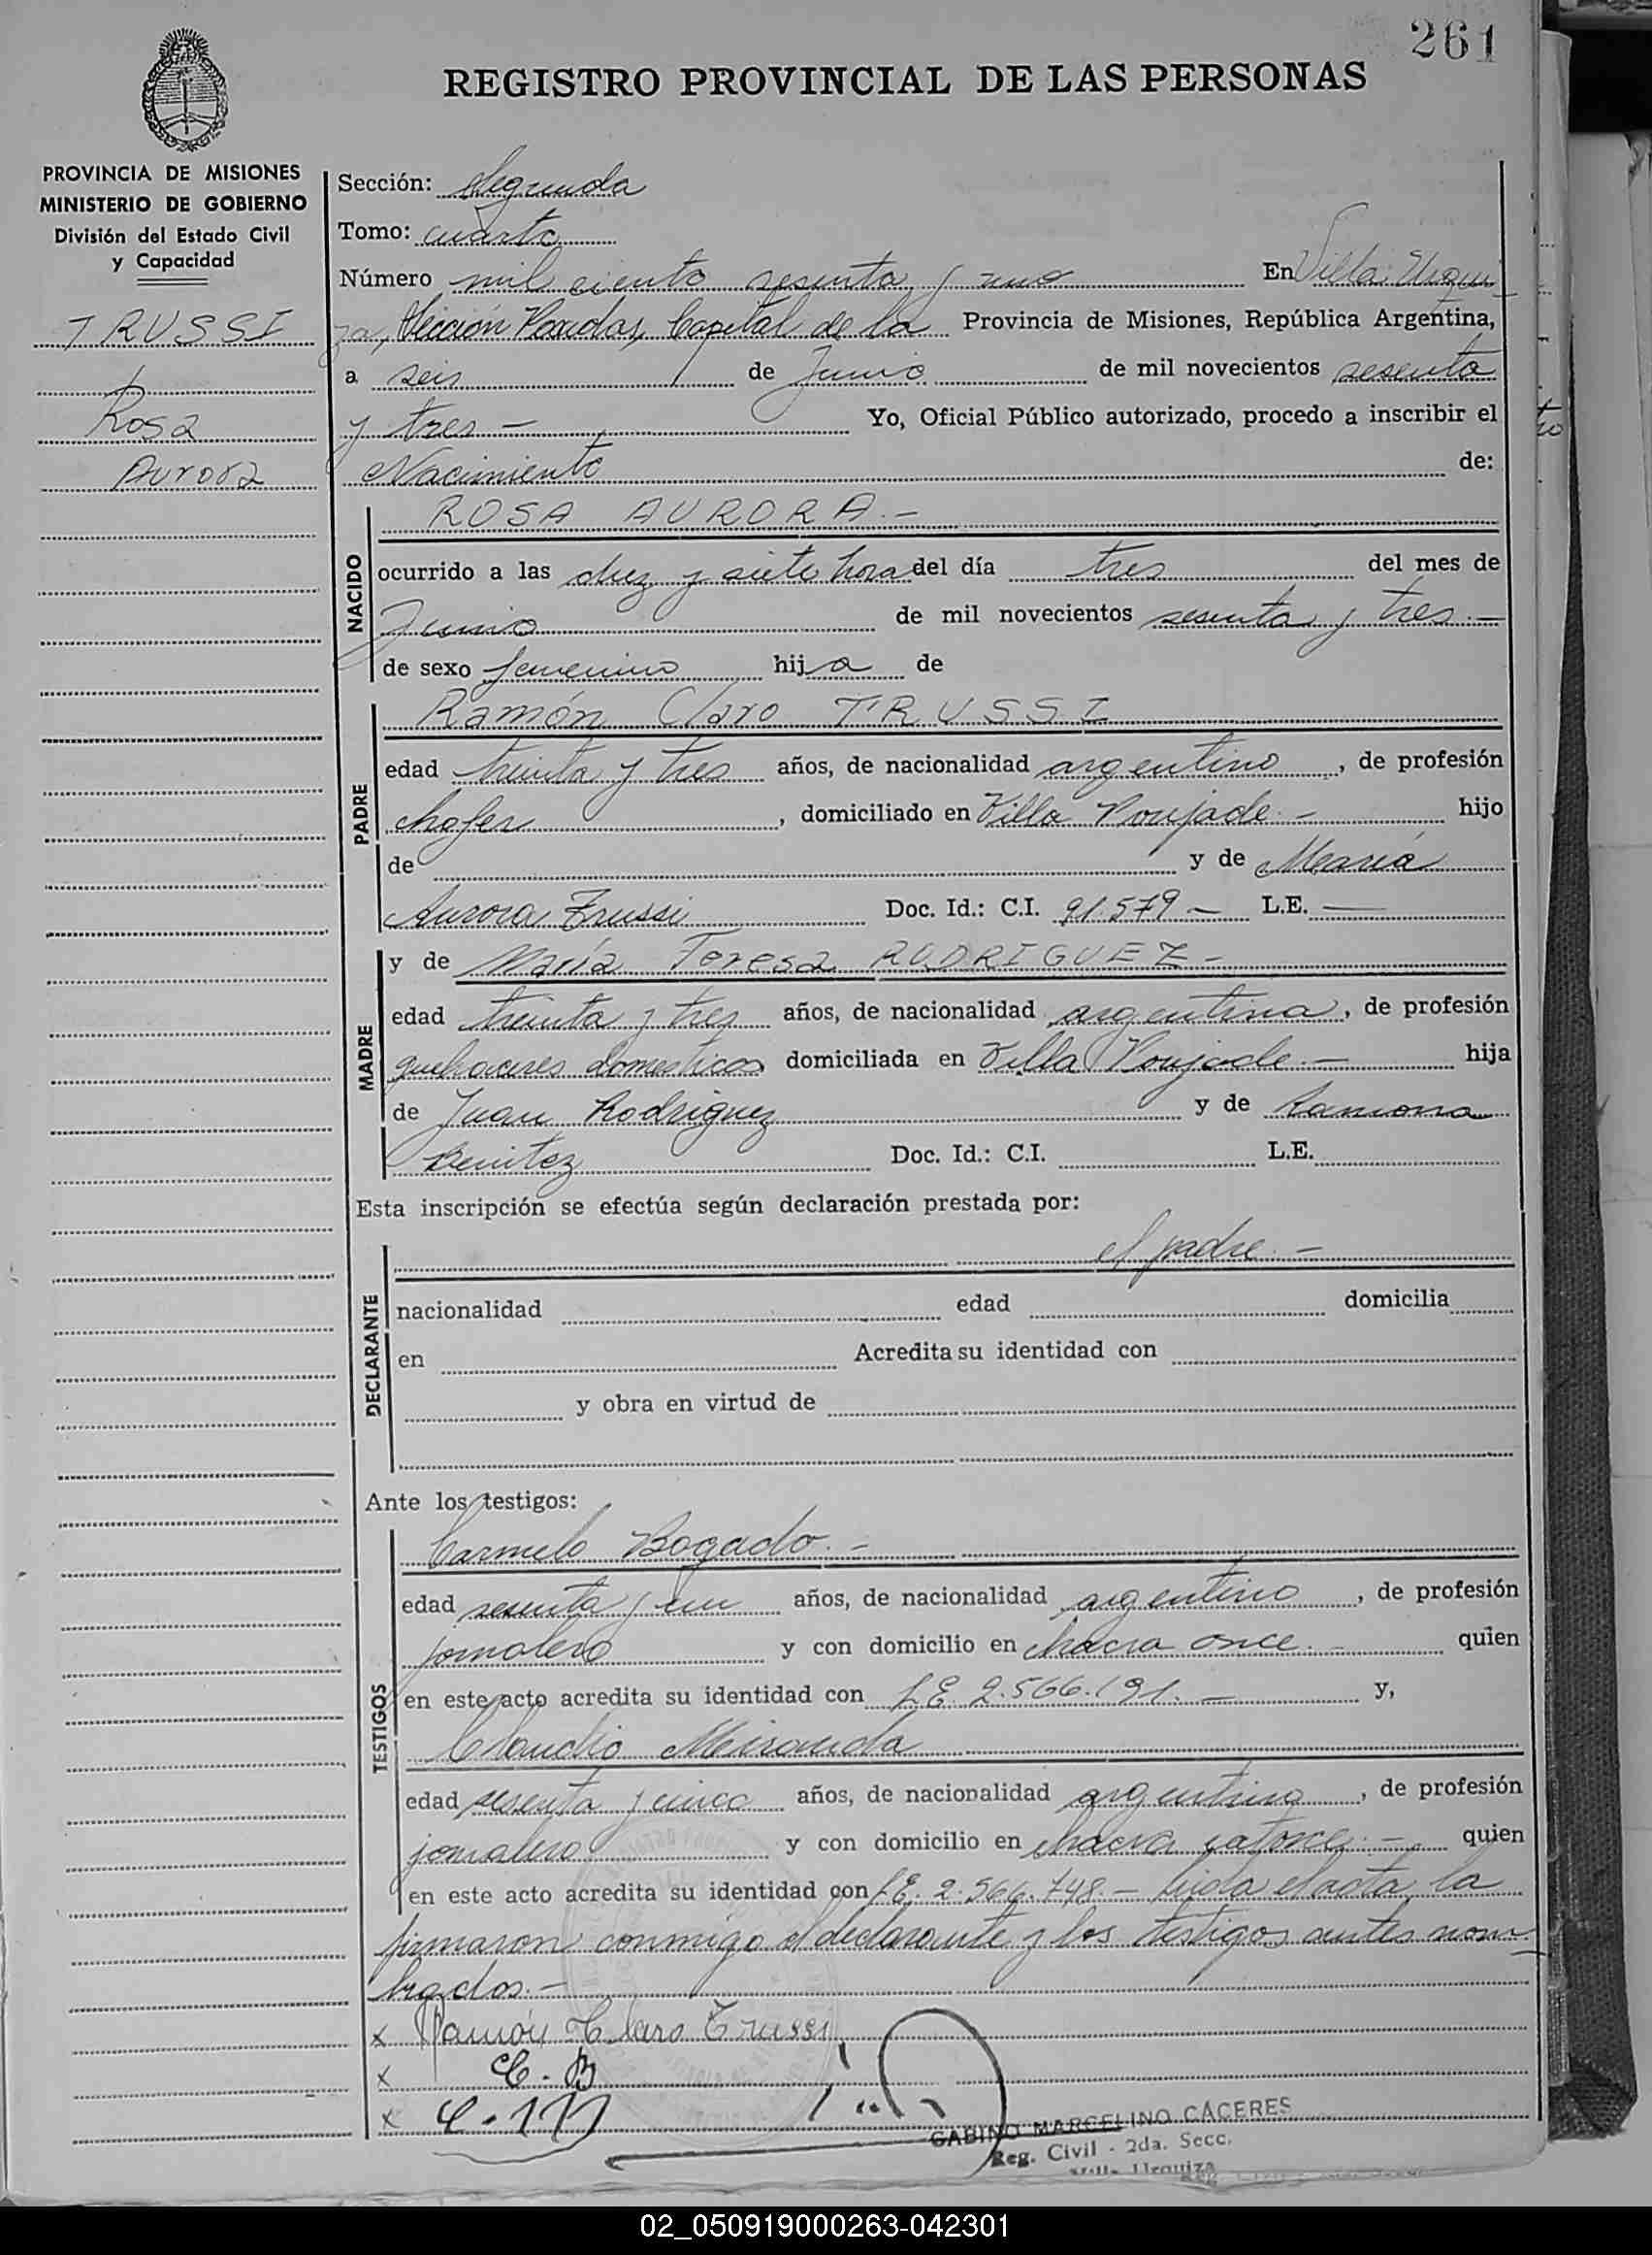 261
REGISTRO PROVINCIAL DE LAS PERSONAS
PROVINCIA DE MISIONES
MINISTERIO DE GOBIERNO
División del Estado Civil
y Capacidad
TRUSSI
Rosa
Aurora
Sección: Segunda
Tomo: cuarto
Número mil ciento sesenta y uno En Villa Urqui
za, Sección Posadas, Capital de la Provincia de Misiones, República Argentina,
a seis de Junio de mil novecientos sesenta
y tres - Yo, Oficial Público autorizado, procedo a inscribir el
Nacimiento de:
NACIDO
ROSA AURORA.-
ocurrido a las diez y siete hora del día tres del mes de
Junio de mil novecientos sesenta y tres.-
de sexo femenino hija de
PADRE
Ramón Claro TRUSSI
edad treinta y tres años, de nacionalidad argentino, de profesión
chofer, domiciliado en Villa Poujade.- hijo
de y de María
Aurora Trussi Doc. Id.: C.I. 91.579 - L.E. -
MADRE
y de María Teresa RODRIGUEZ -
edad treinta y tres años, de nacionalidad argentina, de profesión
quehaceres domesticos domiciliada en Villa Poujade.- hija
de Juan Rodriguez y de Ramona
Benitez Doc. Id.: C.I. L.E.
Esta inscripción se efectúa según declaración prestada por:
DECLARANTE
el padre.-
nacionalidad edad domicilia
en Acredita su identidad con
y obra en virtud de
Ante los testigos:
TESTIGOS
Carmelo Bogado.-
edad sesenta y un años, de nacionalidad argentino, de profesión
jornalero y con domicilio en chacra once.- quien
en este acto acredita su identidad con LE 2.566.191.- y,
Claudio Miranda
edad sesenta y cinco años, de nacionalidad argentino, de profesión
jornalero y con domicilio en chacra catorce.- quien
en este acto acredita su identidad con LE. 2.566.748.- Leida el acta, la
firmaron conmigo el declarante y los testigos antes nom-
brados.-
x Ramón Claro Trussi
x C. B
x C. M
GABINO MARCELINO CACERES
Reg. Civil - 2da. Secc.
Villa Urquiza
02_050919000263-042301